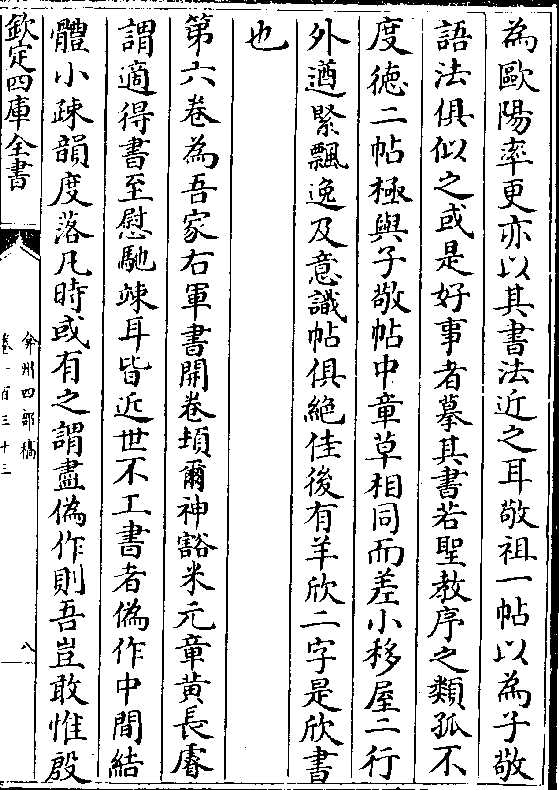 為歐陽率更亦以其書法近之耳敬祖一帖以為子敬
語法俱似之或是好事者摹其書若聖教序之類孤不
度徳二帖極與子敬帖中章草相同而差小移屋二行
外遒緊飄逸及意識帖俱絶佳後有羊欣二字是欣書
也
第六卷為吾家右軍書開卷頃爾神豁米元章黄長睿
謂適得書至慰馳竦耳皆近世不工書者偽作中間結
體小疎韻度落凡時或有之謂盡偽作則吾豈敢惟殷
欽定四庫全書
弇州四部稿
卷一百三十三
八